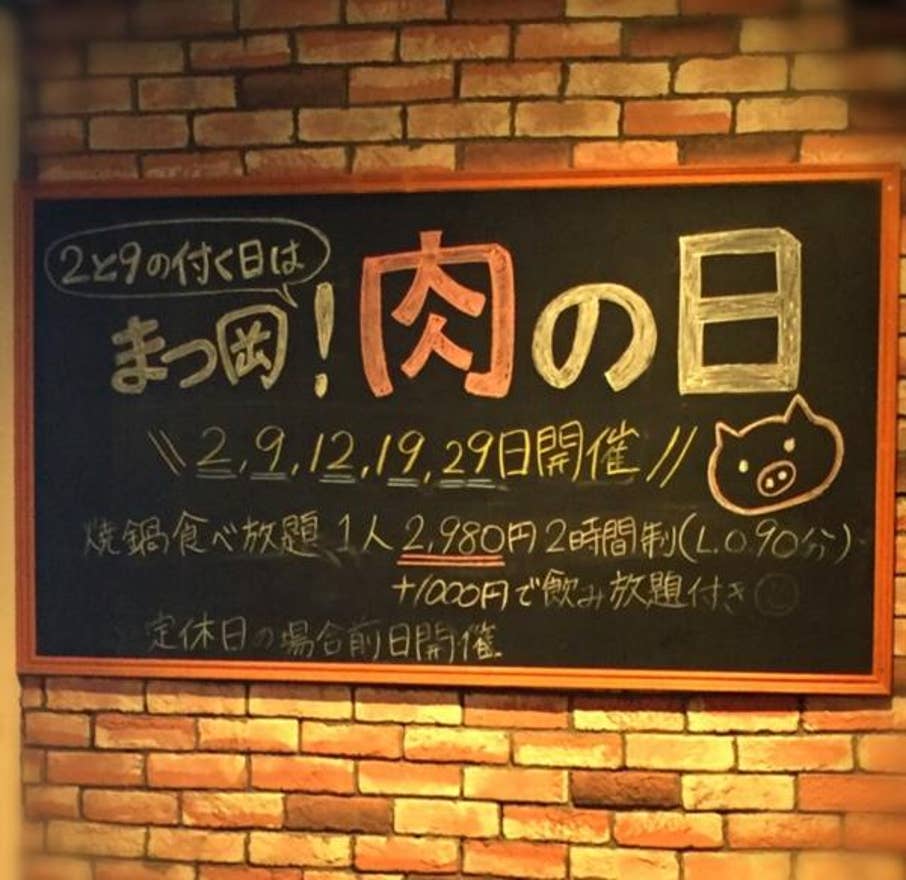 2と9の付く日は
まつ岡!肉の日
\\2,9,12,19,29日開催//
焼鍋食べ放題 1人2,980円 2時間制(L.O.90分)
+1000円で飲み放題付き
定休日の場合前日開催